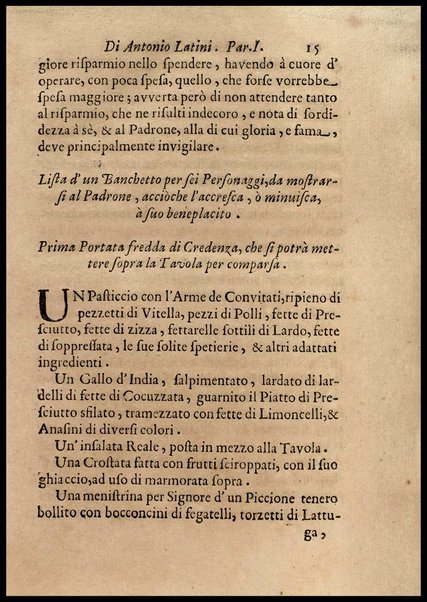 Di Antonio Latini. Par. I. 15
giore risparmio nello spendere, havendo à cuore d'
operare, con poca spesa, quello, che forse vorrebbe
spesa maggiore; avverta però di non attendere tanto
al risparmio, che ne risulti indecoro, e nota di sordi-
dezza à sè, & al Padrone, alla di cui gloria, e fama,
deve principalmente invigilare.
Lista d'un Banchetto per sei Personaggi, da mostrar-
si al Padrone, acciòche l'accresca, ò minuisca,
à suo beneplacito.
Prima Portata fredda di Credenza, che si potrà met-
tere sopra la Tavola per comparsa.
UN Pasticcio con l'Arme de Convitati, ripieno di
pezzetti di Vitella, pezzi di Polli, fette di Pre-
sciutto, fette di zizza, fettarelle sottili di Lardo, fette
di soppressata, le sue solite spetierie, & altri adattati
ingredienti.
Un Gallo d'India, salpimentato, lardato di lar-
delli di fette di Cocuzzata, guarnito il Piatto di Pre-
sciutto sfilato, tramezzato con fette di Limoncelli, &
Anasini di diversi colori.
Un' insalata Reale, posta in mezzo alla Tavola.
Una Crostata fatta con frutti sciroppati, con il suo
ghiaccio, ad uso di marmorata sopra.
Una menistrina per Signore d' un Piccione tenero
bollito con bocconcini di fegatelli, torzetti di Lattu-
ga,